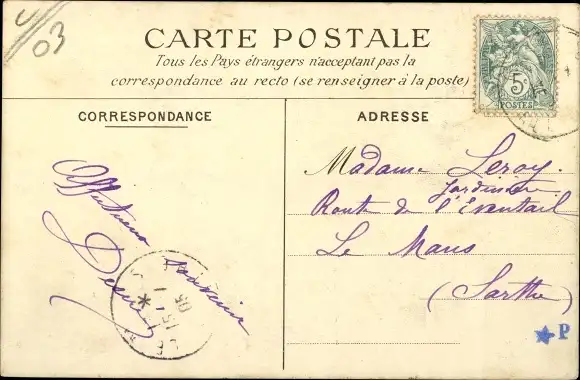 03
CARTE POSTALE
Tous les Pays étrangers n'acceptant pas la
correspondance au recto (se renseigner à la poste)
5c
POSTES
CORRESPONDANCE
ADRESSE
Affectueux
souvenir
Madame Leroy.
Route de l'Eventail
Le Mans
(Sarthe)
P